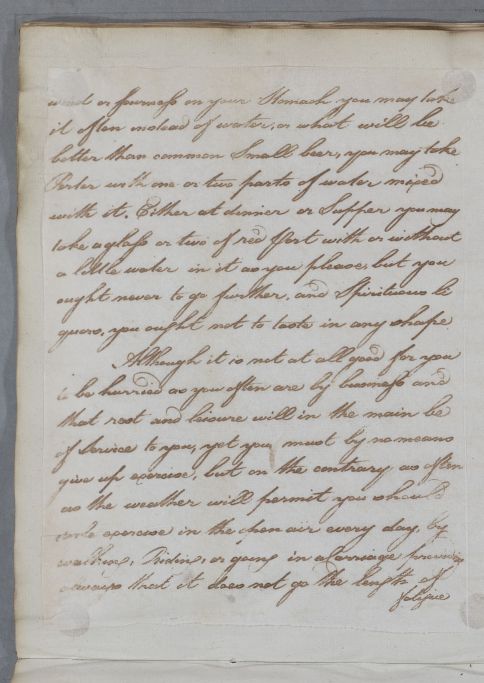 wind or sourness on your Stomach you may take
it often instead of water, or what will be
better than common Small beer, you may take
Porter with one or two parts of water mixed
with it, Either at dinner or Supper you may
take a glass or two of red Port with or without
a little water in it as you please, but you
ought never to go further, and Spirituous li
quors, you ought not to taste in any shape
Although it is not at all good for you
to be hurried as you often are by business and
that rest and leisure will in the main be
of Service to you, yet you must by no means
give up exercise, but on the contrary as often
as the weather will permit you should
take exercise in the open air every day, by
walking, Riding, or going in a Carriage provided
always that it does not go the length of
fatigue